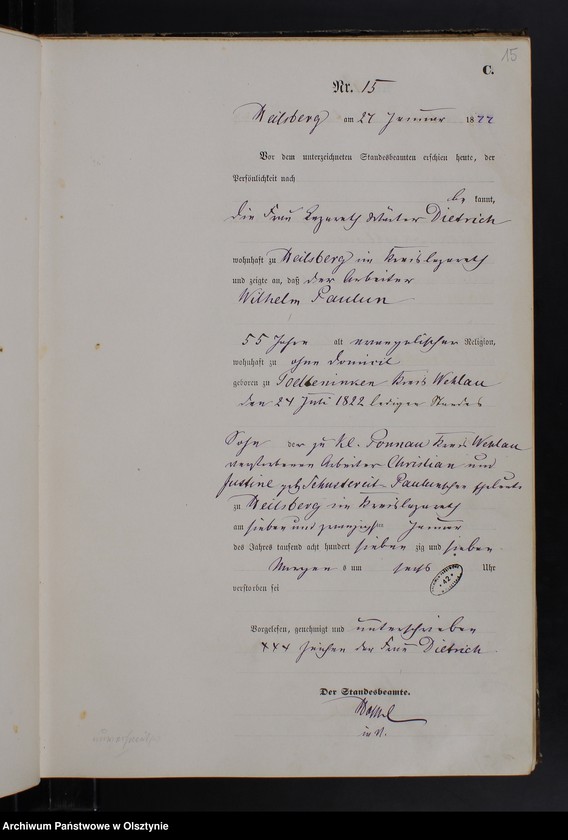 15
C.
Nr. 15
Heilsberg am 27 Januar 1877
Vor dem unterzeichneten Standesbeamten erschien heute, der
Persönlichkeit nach
be kannt,
die Frau Lazareth Wärter Dietrich
wohnhaft zu Heilsberg im Kreislazareth
und zeigte an, daß der Arbeiter
Wilhelm Paulun
55 Jahre alt evangelischer Religion,
wohnhaft zu ohne Domicil
geboren zu Kreis Wehlau
den 24 Juli 1822 ledigen Standes
Sohn der zu Kl. Ponnau Kreis Wehlau
verstorbenen Arbeiter Christian und
Justine geb. Schustereit Paulunschen Eheleute
zu Heilsberg im Kreislazareth
am sieben und zwanzigsten Januar
des Jahres tausend acht hundert sieben zig und sieben
Morgens um sechs Uhr
verstorben sei
Vorgelesen, genehmigt und unterschrieben
+++ Zeichen der Frau Dietrich
Der Standesbeamte.
in V.
Archiwum Państwowe w Olsztynie